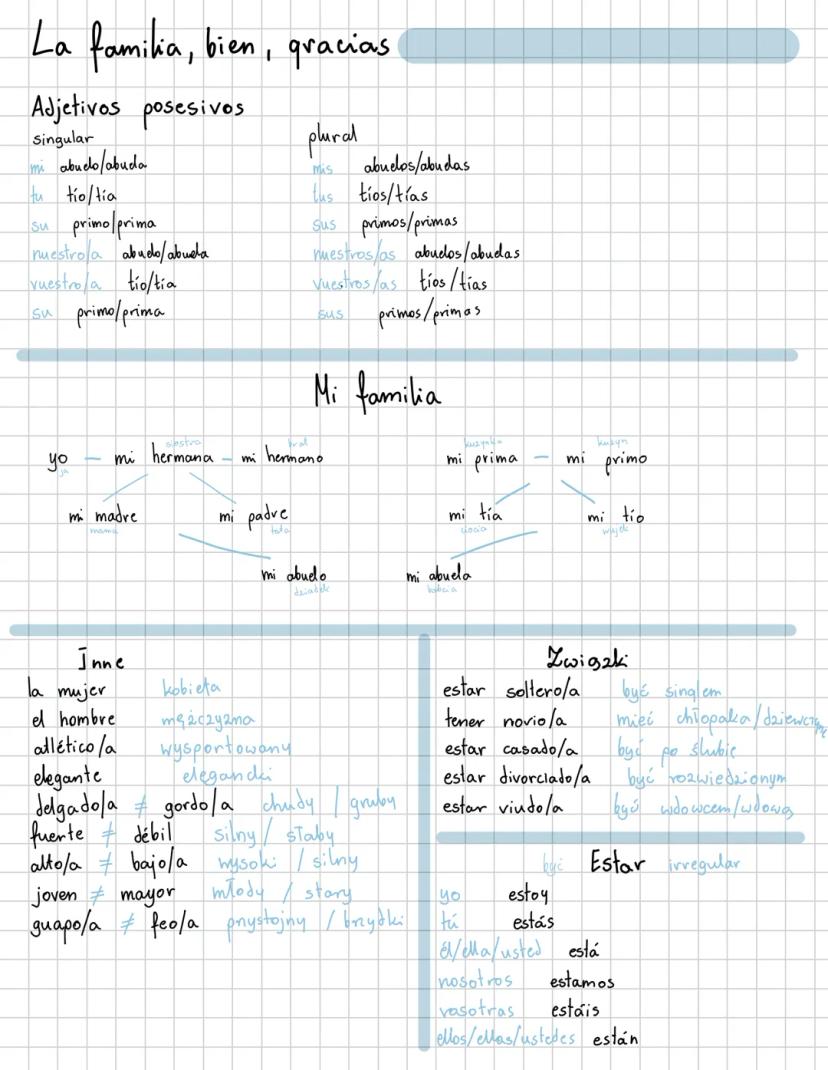 La familia, bien, gracias
Adjetivos posesivos
singular
mi abuelo/abuela
tu tío/tía
su primo/prima
nuestro/a abuelo/abuela
vuestro/a tío/tía
su primo/prima
plural
mis abuelos/abuelas
tus tíos/tías
sus primos/primas
nuestros/as abuelos/abuelas
vuestros/as tíos/tías
sus primos/primas
Mi familia
siostra brat kuzynka kuzyn
yo – mi hermana – mi hermano mi prima – mi primo
ja
mi madre mi padre mi tía mi tío
mama tata ciocia wujek
mi abuelo mi abuela
dziadek babcia
Inne
la mujer kobieta
el hombre mężczyzna
atlético/a wysportowany
elegante elegancki
delgado/a ≠ gordo/a chudy / gruby
fuerte ≠ débil silny / słaby
alto/a ≠ bajo/a wysoki / silny
joven ≠ mayor młody / stary
guapo/a ≠ feo/a przystojny / brzydki
Związki
estar soltero/a być singlem
tener novio/a mieć chłopaka/dziewczynę
estar casado/a być po ślubie
estar divorciado/a być rozwiedzionym
estar viudo/a być wdowcem/wdową
być Estar irregular
yo estoy
tú estás
él/ella/usted está
nosotros estamos
vosotras estáis
ellos/ellas/ustedes están